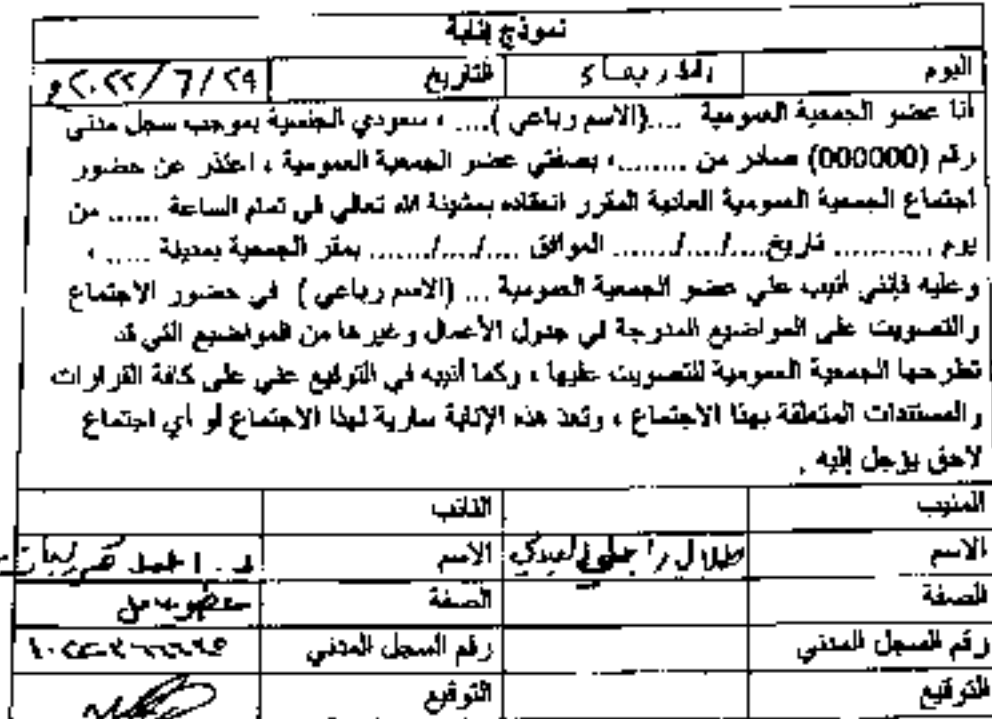 نموذج إنابة
اليوم الأربعاء التاريخ ٢٠٢٢/٦/٢٩م
أنا عضو الجمعية العمومية ....(الاسم رباعي).... ، سعودي الجنسية بموجب سجل مدني
رقم (000000) صادر من ........، بصفتي عضو الجمعية العمومية ، اعتذر عن حضور
اجتماع الجمعية العمومية العادية المقرر انعقاده بمشيئة الله تعالى في تمام الساعة ...... من
يوم ........... تاريخ..../..../....... الموافق ..../..../........ بمقر الجمعية بمدينة ..... ،
وعليه فإنني أنيب عني عضو الجمعية العمومية ... (الاسم رباعي ) في حضور الاجتماع
والتصويت على المواضيع المدرجة في جدول الأعمال وغيرها من المواضيع التي قد
تطرحها الجمعية العمومية للتصويت عليها ، وكما أنيبه في التوقيع عني على كافة القرارات
والمستندات المتعلقة بهذا الاجتماع ، وتعد هذه الإنابة سارية لهذا الاجتماع أو أي اجتماع
لاحق يؤجل إليه .
المنيب النائب
الاسم الاسم
الصفة الصفة
رقم السجل المدني رقم السجل المدني
التوقيع التوقيع